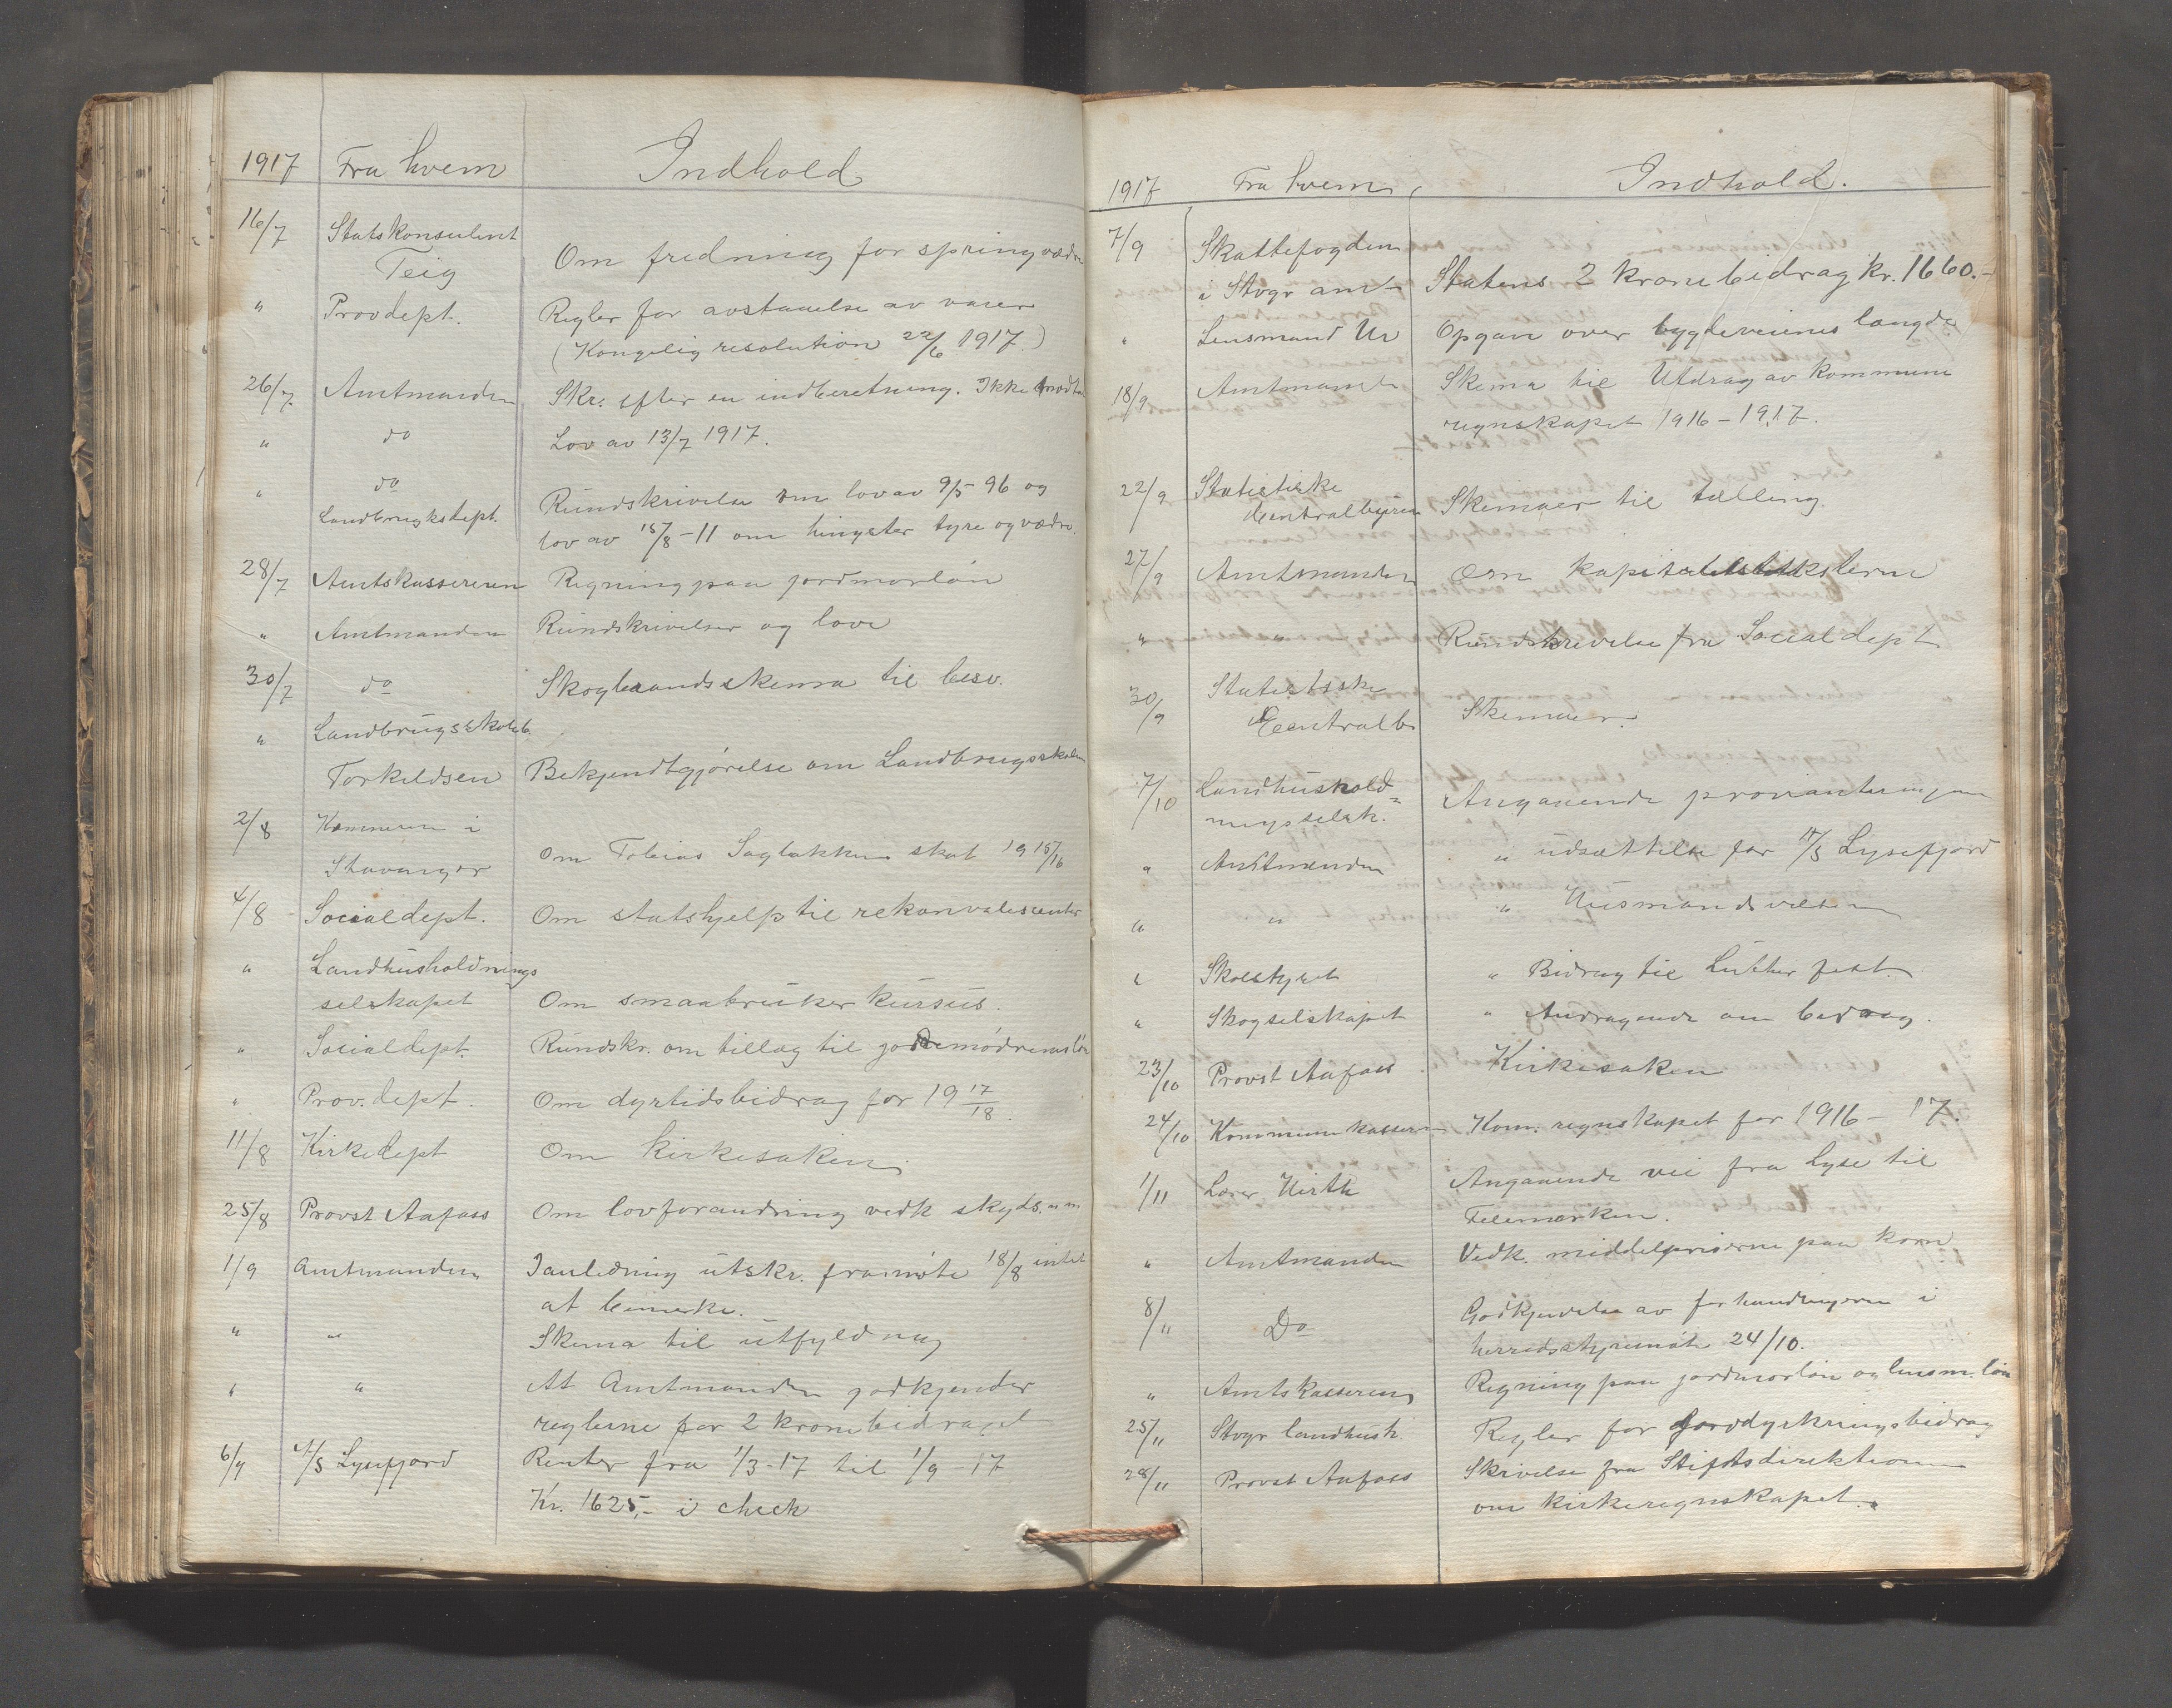 1917 Fra hvem Indhold
16/7 Statskonsulent
Teig Om fredning for springvædre
" Provdept. Regler for avstaaelse av varer
(Kongelig resolution 22/6 1917.)
26/7 Amtmanden Skr. efter en indberetning. Ikke
" do Lov av 13/7 1917.
" do Rundskrivelse om lov av 9/5 96 og
Landbrugksdept. lov av 15/8 - 11 om hingster tyre og vædre
28/7 Amtskassereren Regning paa jordmorløn
" Amtmanden Rundskrivelser og love
30/7 do Skogbrandsskema til besv.
" Landbrugsskoleb.
Torkildsen Bekjendtgjørelse om Landbrugsskolen
2/8 Kemneren i
Stavanger Om Tobias Sagbakken skat 1915/16
4/8 Socialdept. Om statshjelp til rekonvalescenter
" Landhusholdnings
selskapet Om smaabruker kursus.
" Socialdept. Rundskr. om tillæg til jordemødrenes løn
" Prov.dept. Om dyrtidsbidrag for 19 17/18.
11/8 Kirkedept Om kirkesaken
25/8 Provst Aafoss Om lovforandring vedk skyds. m m
1/9 Amtmanden I anledning utskr. fra møte 18/8 intet
at bemerke.
" " Skema til utfyldning
" " At Amtmanden godkjender
reglerne for 2 kronebidraget
6/9 A/S Lysefjord Renter fra 1/3-17 til 1/9 - 17
Kr. 1625,- i check
1917 Fra hvem Indhold.
7/9 Skattefogden
i Stvgr amt Statens 2 kronebidrag kr. 1660.-
" Lensmand Ur Opgav over bygdeveienes længde
18/9 Amtmanden Skema til Utdrag av kommune
regnskapet 1916 - 1917.
22/9 Statistiske
Centralbyrå Skemaer til tælling.
27/9 Amtmanden Om
" " Rundskrivelse fra Socialdept
30/9 Statistiske
Centralb Skemaer.
7/10 Landhushold=
ningsselsk. Angaaende provianteringen
" Amtmanden " udsættelse for A/S Lysefjord
" " " Husmandsvæsen
" Skolestyret " Bidrag til Luther fest
" Skogselskapet " Andragende om bidrag.
23/10 Provst Aafoss Kirkesaken
24/10 Kommunekasserer Kom. regnskapet for 1916 - 17.
1/11 Lærer Hirth Angaaende vei fra Lyse til
Telemarken.
" Amtmanden Vedk. middelpriserne paa korn
8/11 Do Godkjendelse av forhandlingerne i
herredsstyremøte 24/10.
" Amtskassereren Regning paa jordmorløn og lensm. løn
25/11 Stvgr landhush. Regler for jorddyrkningsbidrag
28/11 Provst Aafoss Skrivelse fra Stiftsdirektionen
om kirkeregnskapet.